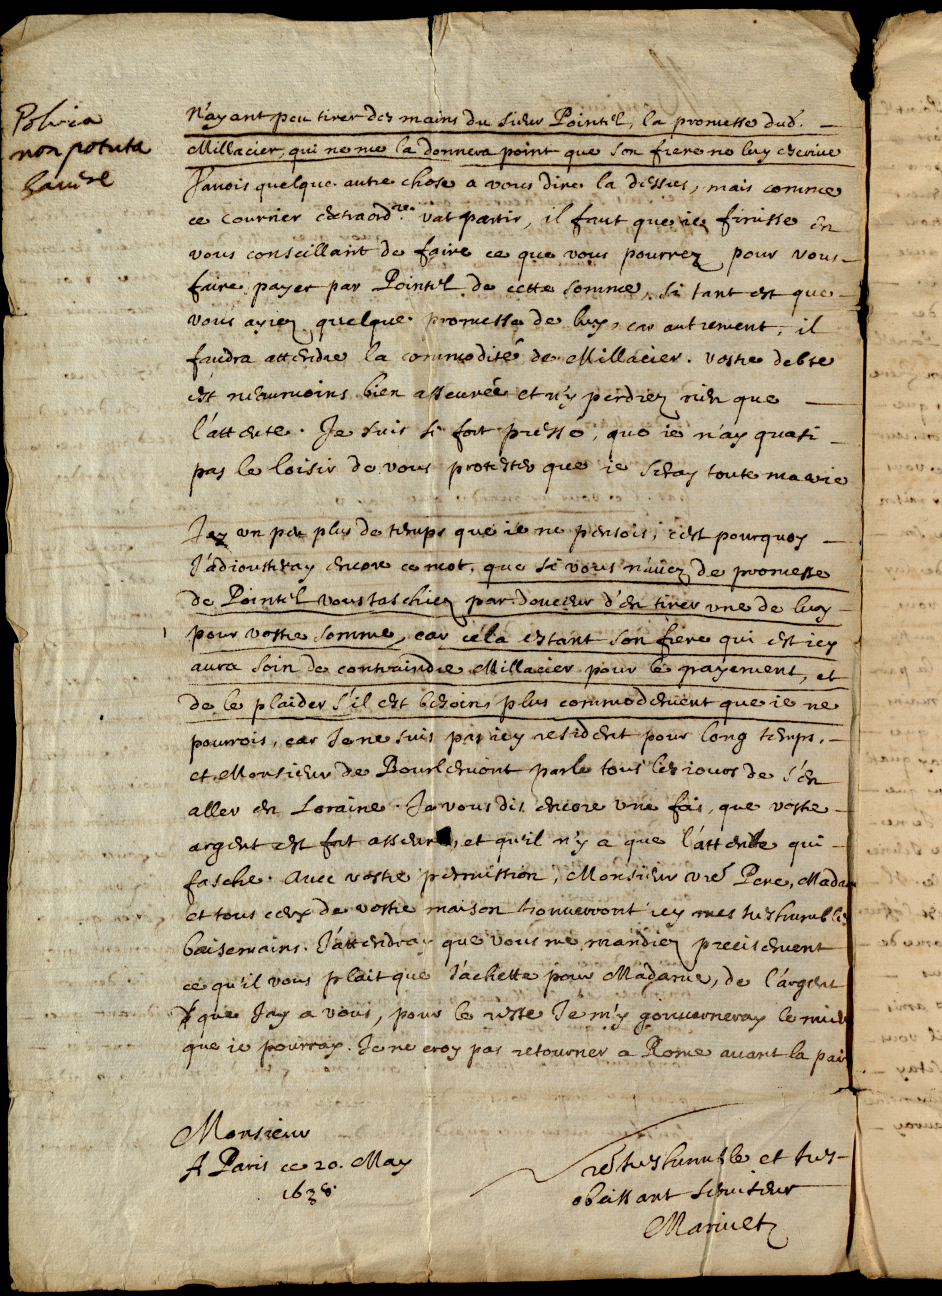 non potuta
N'ayant peu tirer des mains du sieur Pointel, la promesse dud.
Millacier, qui ne me la donnera point que son frere ne luy escrive
J'avois quelque autre chose a vous dire la dessus, mais comme
ce courrier extraord.re vat partir, il faut que ie finisse en
vous conseillant de faire ce que vous pourrez pour vous
faire payer par Pointel de cette somme, si tant est que
vous ayiez quelque promesse de luy, car autrement, il
faudra attendre la commodité de Millacier. vostre debte
est neanmoins bien asseurée et n'y perdrez rien que
l'attente. Je suis si fort pressé, que ie n'ay quasi
pas le loisir de vous protester que ie seray toute ma vie
J'ay un peu plus de temps que ie ne pensois, c'est pourquoy
J'adiousteray encore ce mot, que si vous n'avez de promesse
de Pointel vous taschiez par douceur d'en tirer une de luy
pour vostre somme, car cela estant son frere qui est icy
aura soin de contraindre Millacier pour le payement, et
de le plaider s'il est besoin, plus commodement que ie ne
pourrois, car Je ne suis pas icy resident pour long temps,
et Monsieur de Bourlemont parle tous les iours de s'en
aller en Loraine. Je vous dis encore une fois, que vostre
argent est fort asseuré, et qu'il n'y a que l'attente qui
fasche. Avec vostre permission, Monsieur vre Pere, Mada
et tous ceux de vostre maison trouverront icy mes tres humbles
baisemains. J'attendray que vous me mandiez precisement
ce qu'il vous plait que J'achette pour Madame, de l'argent
que J'ay a vous, pour le reste Je m'y gouverneray le mieu
que ie pourray. Je ne croy pas retourner a Rome avant la pai
Monsieur
A Paris ce 20. May
1638.
vre tres humble et tres
obeissant serviteur